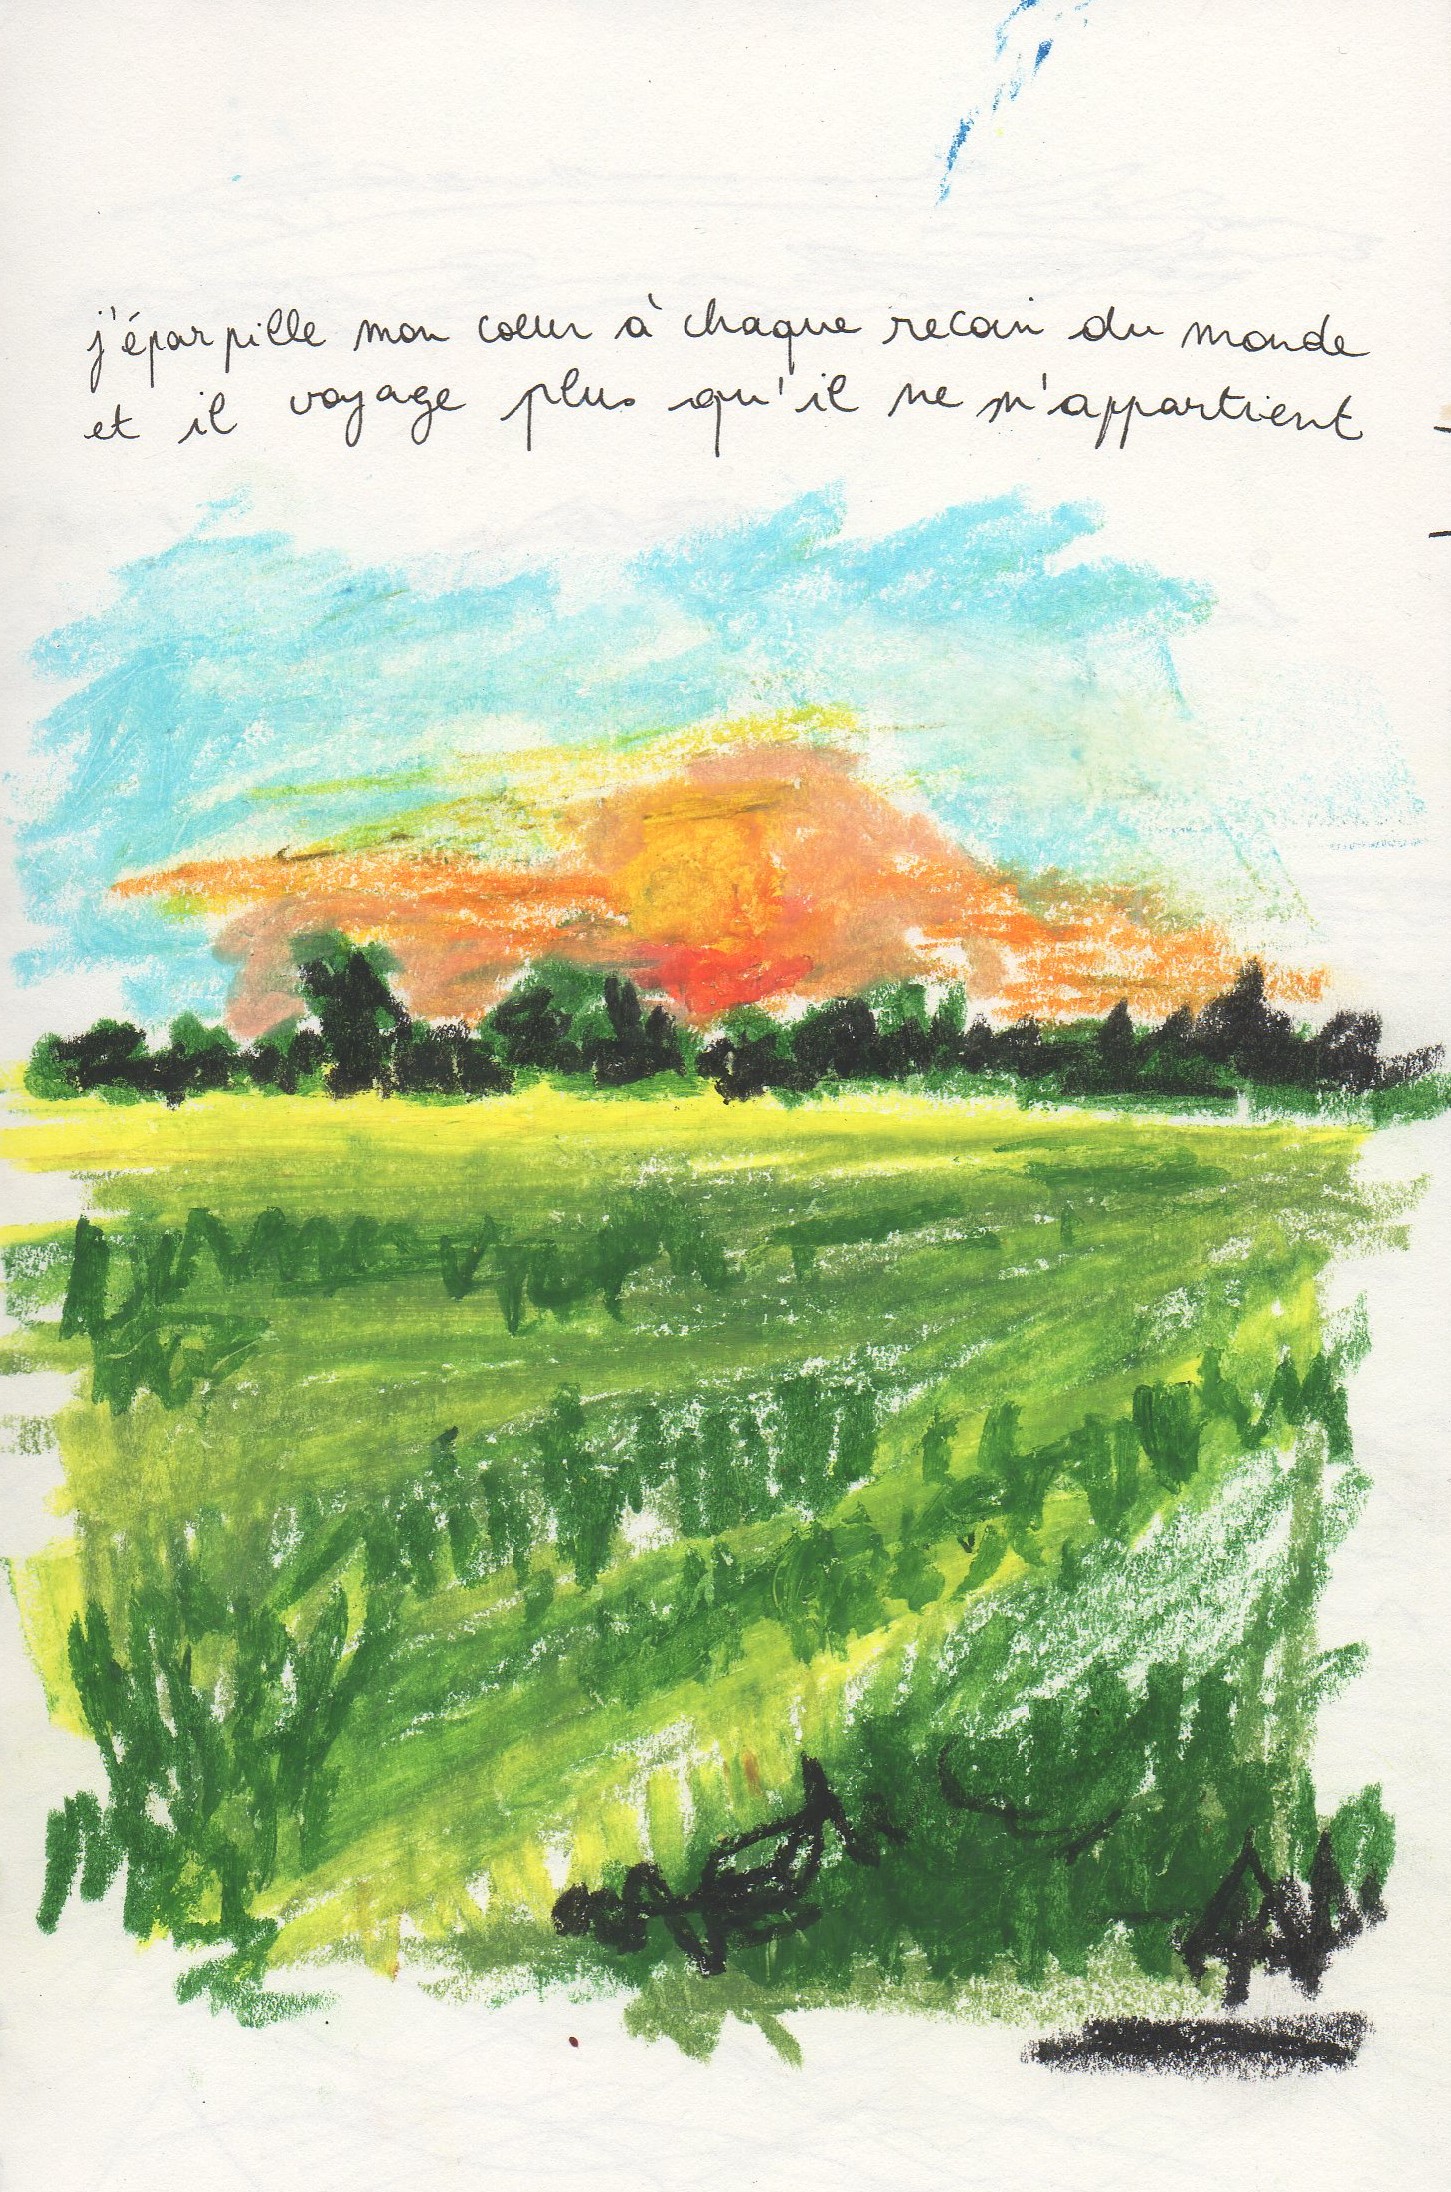 j'éparpille mon coeur à chaque recoin du monde
et il voyage plus qu'il ne m'appartient